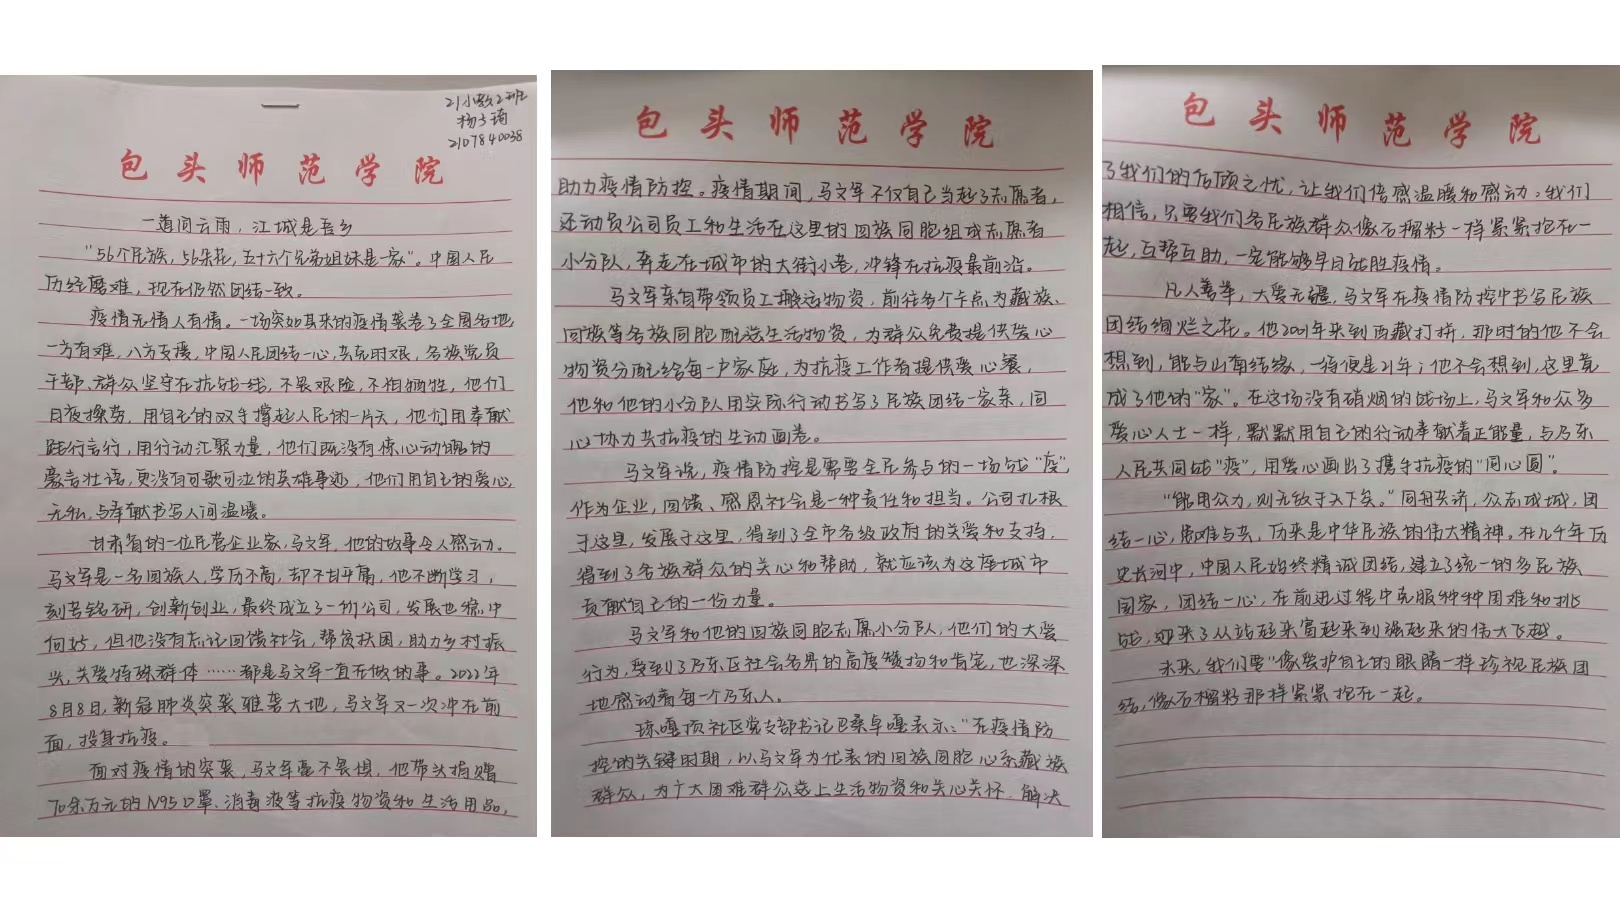 21小教2班
2107840038
包头师范学院
一道同云雨，江城是吾乡
"56个民族，56朵花，五十六个兄弟姐妹是一家"。中国人民
历经磨难，现在仍然团结一致。
疫情无情人有情。一场突如其来的疫情袭卷了全国各地，
一方有难，八方支援，中国人民团结一心，共克时艰，各族党员
干部、群众坚守在抗战一线，不畏艰险，不怕牺牲，他们
日夜操劳，用自己的双手撑起人民的一片天，他们用奉献
践行言行，用行动汇聚力量，他们既没有惊心动魄的
豪言壮语，更没有可歌可泣的英雄事迹，他们用自己的爱心，
无私，与奉献书写人间温暖。
甘肃省的一位民营企业家，马文军，他的故事令人感动。
马文军是一名回族人，学历不高，却不甘平庸，他不断学习，
刻苦钻研，创新创业，最终成立了一所公司，发展也稳中
向好，但他没有忘记回馈社会，帮贫扶困，助力乡村振
兴，关爱特殊群体……都是马文军一直在做的事。2022年
8月8日，新冠肺炎突袭雅砻大地，马文军又一次冲在前
面，投身抗疫。
面对疫情的突袭，马文军毫不畏惧，他带头捐赠
70余万元的N95口罩、消毒液等抗疫物资和生活用品，
包头师范学院
助力疫情防控。疫情期间，马文军不仅自己当起了志愿者，
还动员公司员工和生活在这里的回族同胞组成志愿者
小分队，奔走在城市的大街小巷，冲锋在抗疫最前沿。
马文军亲自带领员工搬运物资，前往多个卡点为藏族、
回族等各族同胞配送生活物资，为群众免费提供爱心
物资分配给每一户家庭，为抗疫工作者提供爱心餐，
他和他的小分队用实际行动书写了民族团结一家亲，同
心协力共抗疫的生动画卷。
马文军说，疫情防控是需要全民参与的一场战"疫"，
作为企业，回馈、感恩社会是一种责任和担当。公司扎根
于这里，发展于这里，得到了全市各级政府的关爱和支持，
得到了各族群众的关心和帮助，就应该为这座城市
贡献自己的一份力量。
马文军和他的回族同胞志愿小分队，他们的大爱
行为，受到了乃东区社会各界的高度赞扬和肯定，也深深
地感动着每一个乃东人。
琼嘎顶社区党支部书记巴桑卓嘎表示："在疫情防
控的关键时期，以马文军为代表的回族同胞心系藏族
群众，为广大困难群众送上生活物资和关心关怀，解决
包头师范学院
了我们的后顾之忧，让我们倍感温暖和感动。我们
相信，只要我们各民族群众像石榴籽一样紧紧抱在一
起，互帮互助，一定能够早日战胜疫情。
凡人善举，大爱无疆，马文军在疫情防控中书写民族
团结绚烂之花。他2001年来到西藏打拼，那时的他不会
想到，能与山南结缘，一待便是21年；他不会想到，这里竟
成了他的"家"。在这场没有硝烟的战场上，马文军和众多
爱心人士一样，默默用自己的行动奉献着正能量，与乃东
人民共同战"疫"，用爱心画出了携手抗疫的"同心圆"。
"能用众力，则无敌于天下矣。"同舟共济，众志成城，团
结一心，患难与共，历来是中华民族的伟大精神。在几千年历
史长河中，中国人民始终精诚团结，建立了统一的多民族
国家，团结一心，在前进过程中克服种种困难和挑
战，迎来了从站起来富起来到强起来的伟大飞越。
未来，我们要"像爱护自己的眼睛一样珍视民族团
结，像石榴籽那样紧紧抱在一起。